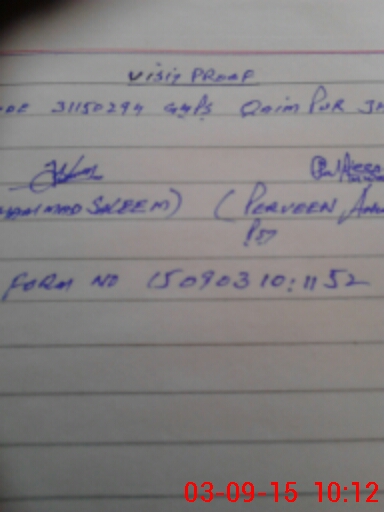 VISIT PROOF
31150294 GGPS QAIM PUR
SALEEM) (PERVEEN
FORM NO 15090310:1152
03-09-15 10:12